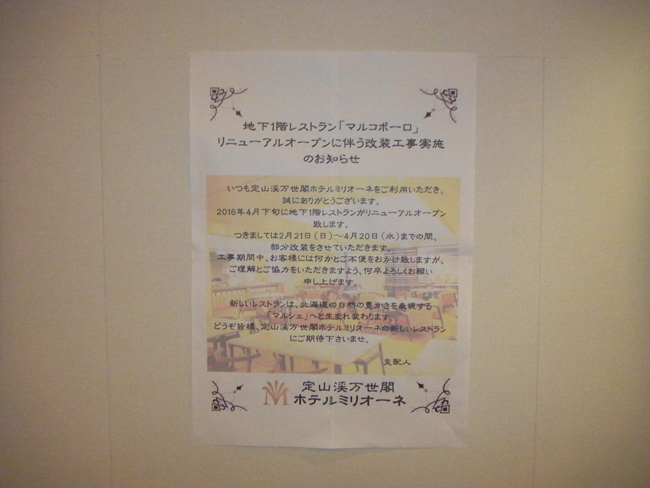 地下1階レストラン「マルコポーロ」
リニューアルオープンに伴う改装工事実施
のお知らせ
いつも定山渓万世閣ホテルミリオーネをご利用いただき、
誠にありがとうございます。
2016年4月下旬に地下1階レストランがリニューアルオープン
致します。
つきましては2月21日(日)～4月20日(水)までの間、
部分改装をさせていただきます。
工事期間中、お客様には何かとご不便をおかけ致しますが、
ご理解とご協力をいただきますよう、何卒よろしくお願い
申し上げます。
新しいレストランは、北海道の自然の豊かさを表現する
「マルシェ」へと生まれ変わります。
どうぞ皆様、定山渓万世閣ホテルミリオーネの新しいレストラン
にご期待下さいませ。
支配人
定山渓万世閣
ホテルミリオーネ